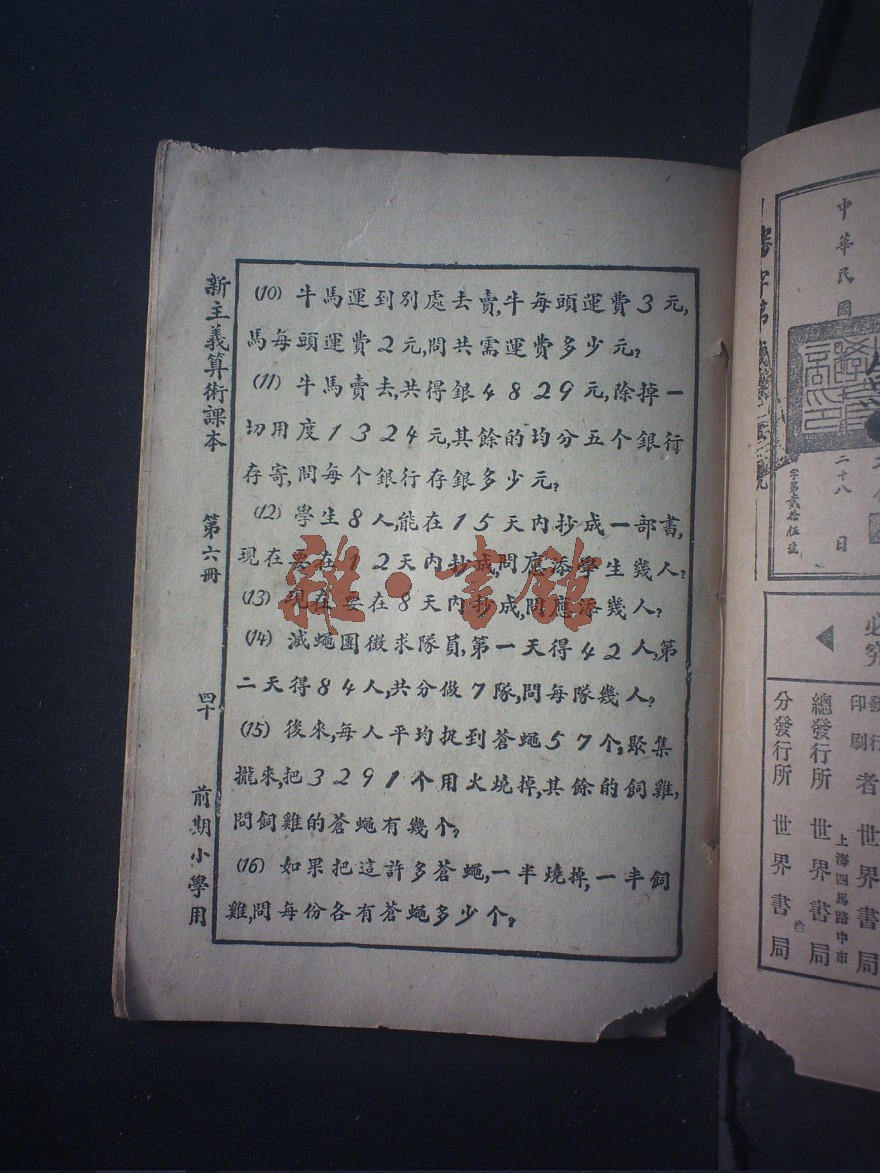 (10) 牛馬運到別處去賣,牛每頭運費3元,
馬每頭運費2元,問共需運費多少元?
(11) 牛馬賣去,共得銀4829元,除掉一
切用度1324元,其餘的均分五个銀行
存寄,問每个銀行存銀多少元?
(12) 學生8人,能在15天內抄成一部書,
現在要在12天內抄成,問應添學生幾人?
(13) 現在要在8天內抄成,問應添幾人?
(14) 滅蠅團徵求隊員,第一天得42人,第
二天得84人,共分做7隊,問每隊幾人?
(15) 後來,每人平均捉到蒼蠅57个,聚集
攏來,把3291个用火燒掉,其餘的飼雞,
問飼雞的蒼蠅有幾个?
(16) 如果把這許多蒼蠅,一半燒掉,一半飼
雞,問每份各有蒼蠅多少个?
新主義算術課本 第六冊 四十 前期小學用
雜·書館
中華民國
二十八 日
字第貳拾伍號
必究
發行
印刷 者 世界書局
上海四馬路中市
總發行所 世界書局
分發行所 世界書局